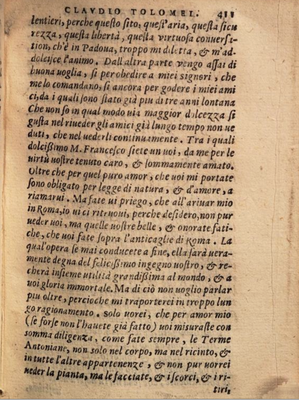 CLAVDIO TOLOMEI. 411
lentieri, perche questo sito, quest'aria, questa sicu
rezza, questa libertà, questa virtuosa conuersa-
tion, ch'è in Padoua, troppo mi diletta, & m'ad-
dolcisce l'animo. Dall'altra parte vengo assai di
buona uoglia, si per obedire a miei signori, che
me lo comandano, si ancora per godere i miei ami
ci, da i quali sono stato già piu di tre anni lontana
Che non so in qual modo uia maggior dolcezza si
gusta nel riueder gli amici già lungo tempo non ue
duti, che nel uederli continuamente. Tra i quali
dolcissimo M. Francesco siete un uoi, da me per le
uirtù uostre tenuto caro, & sommamente amato.
Oltre che per quel puro amor, che uoi mi portate
sono obligato per legge di natura, & d'amore, a
riamarui. Ma fate ui priego, che all'ariuar mio
in Roma, io ui ci ritruoui, perche desidero, non pur
ueder uoi, ma quelle uostre belle, & onorate fati-
che, che uoi fate sopra l'anticaglie di Roma. La
qual opera se mai conducete a fine, ella sarà uera-
mente degna del felicissimo ingegno uostro, & re-
cherà insieme utilità grandissima al mondo, & a
uoi gloria immortale. Ma di ciò non uoglio parlar
piu oltre, percioche mi traporterei in troppo lun
go ragionamento, solo uorei, che per amor mio
(se forse non l'hauete già fatto) uoi misuraste con
somma diligenza, come fate sempre, le Terme
Antoniane, non solo nel corpo, ma nel ricinto, &
in tutte l'altre appartenenze, & non pur uorrei
ueder la pianta, ma le facciate, & i scorci, & i ri-
tiri,